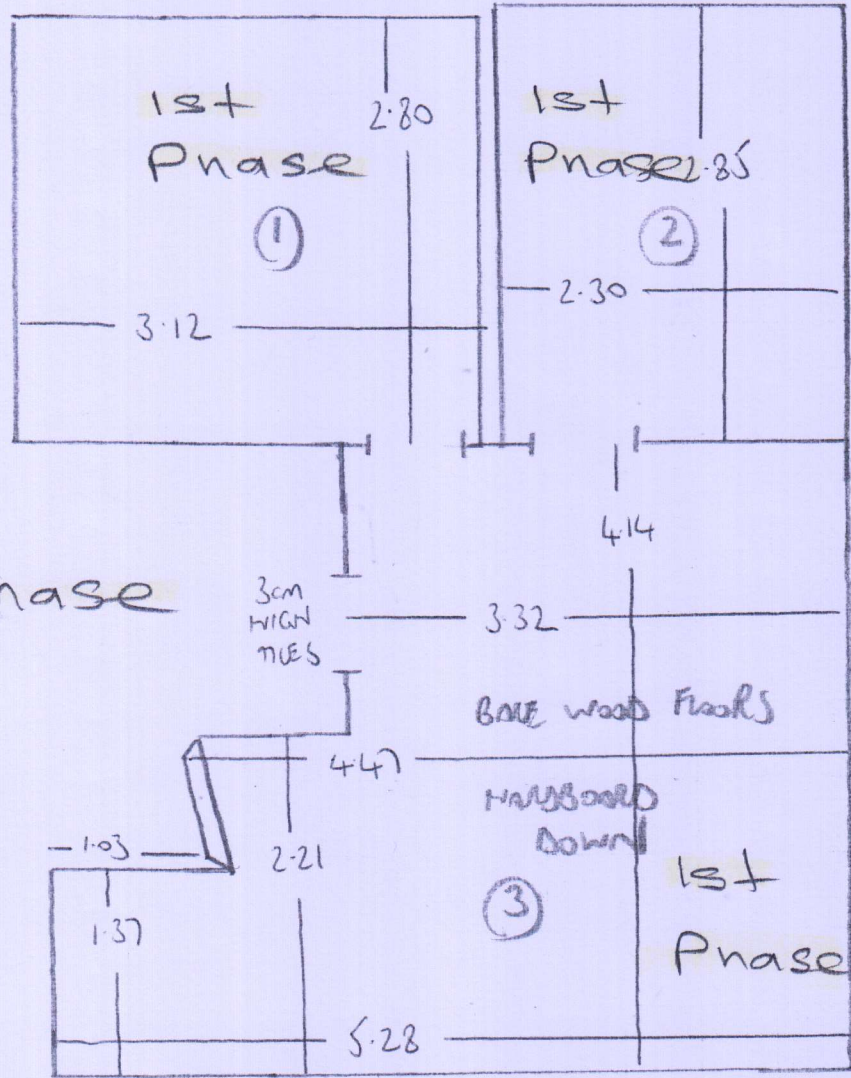 1st
Phase
2.80
1
3.12
1st
Phase
2.85
2
2.30
4.14
hase
3cm
HIGH
TILES
3.32
BARE WOOD FLOORS
4.47
HARDBOARD
DOWN
1.03
2.21
1.37
3
1st
Phase
5.28